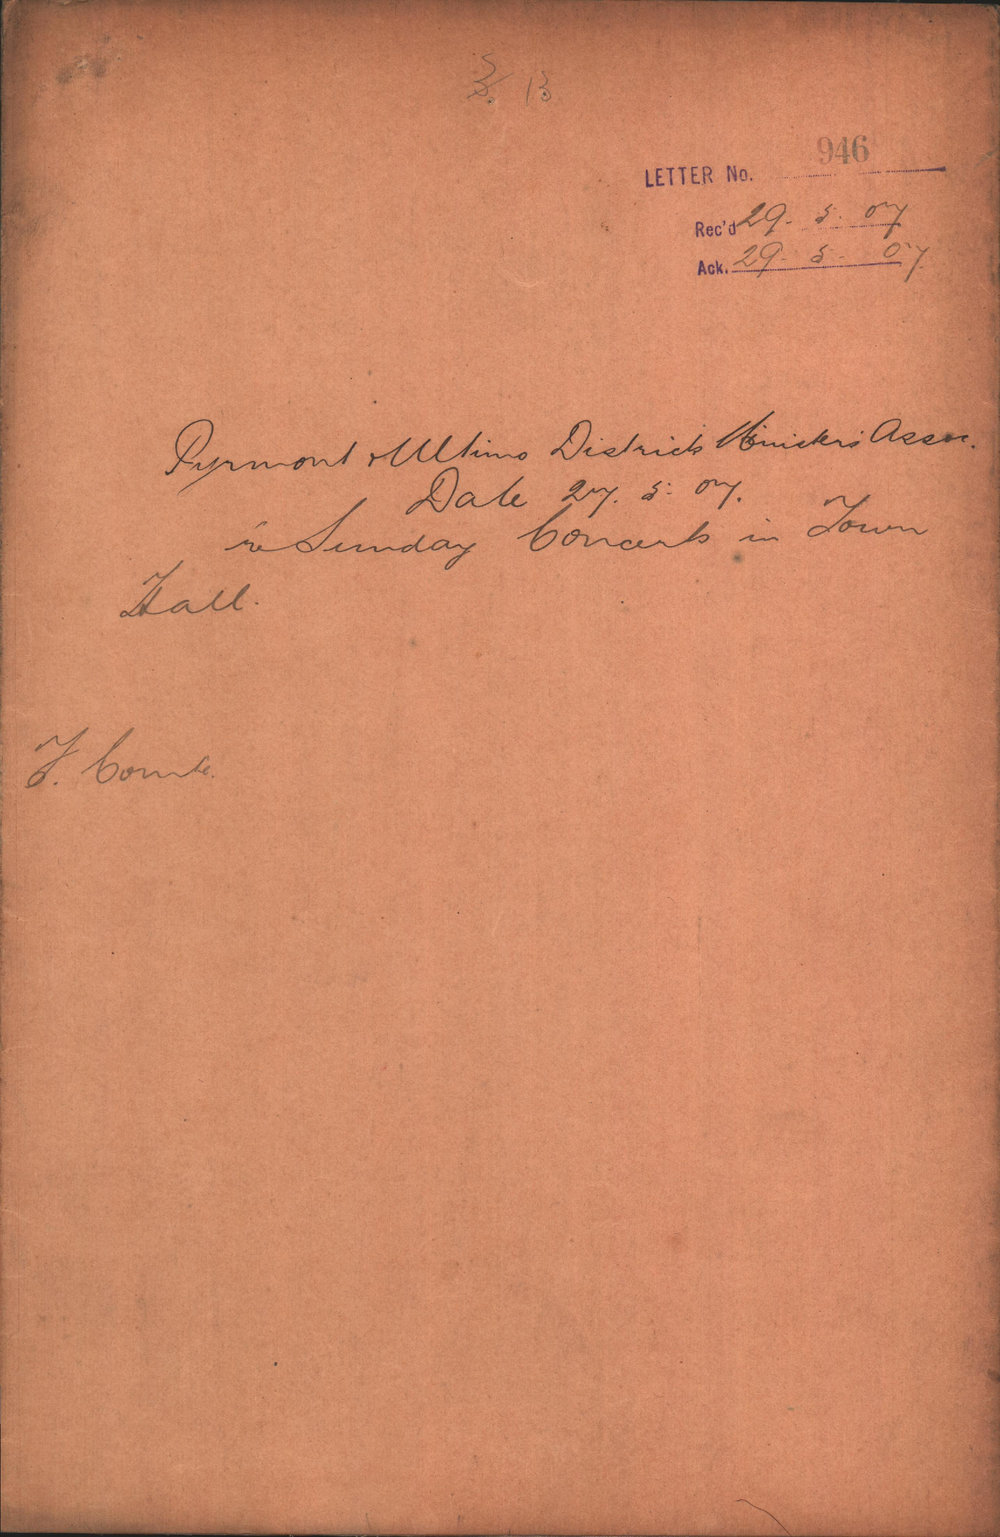 13
LETTER No. 946
Rec'd 29. 5. 07
Ack. 29. 5. 07.
Pyrmont & Ultimo Districts Ministers' Assoc.
Date 27. 5. 07.
re Sunday Concerts in Town
Hall.
F. Comte.